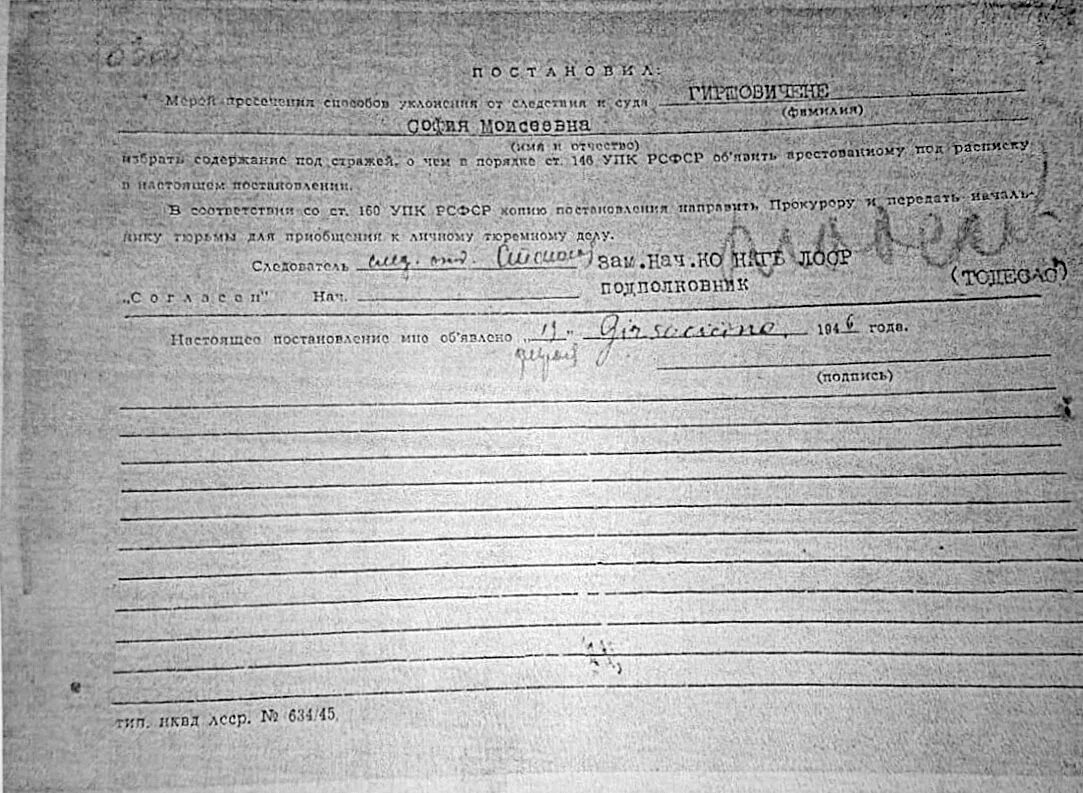 ПОСТАНОВИЛ:
Мерой пресечения способов уклонения от следствия и суда ГИРШОВИЧЕНЕ
(фамилия)
СОФИЯ Моисеевна
(имя и отчество)
избрать содержание под стражей, о чем в порядке ст. 146 УПК РСФСР об'явить арестованному под расписку
в настоящем постановлении.
В соответствии со ст. 160 УПК РСФСР копию постановления направить Прокурору и передать началь-
нику тюрьмы для приобщения к личному тюремному делу.
Следователь след. отд. зам.нач.КО НКГБ ЛССР
подполковник
„Согласен" Нач.
Настоящее постановление мне об'явлено „19" 1946 года.
(подпись)
тип. НКВД лсср. № 634/45.